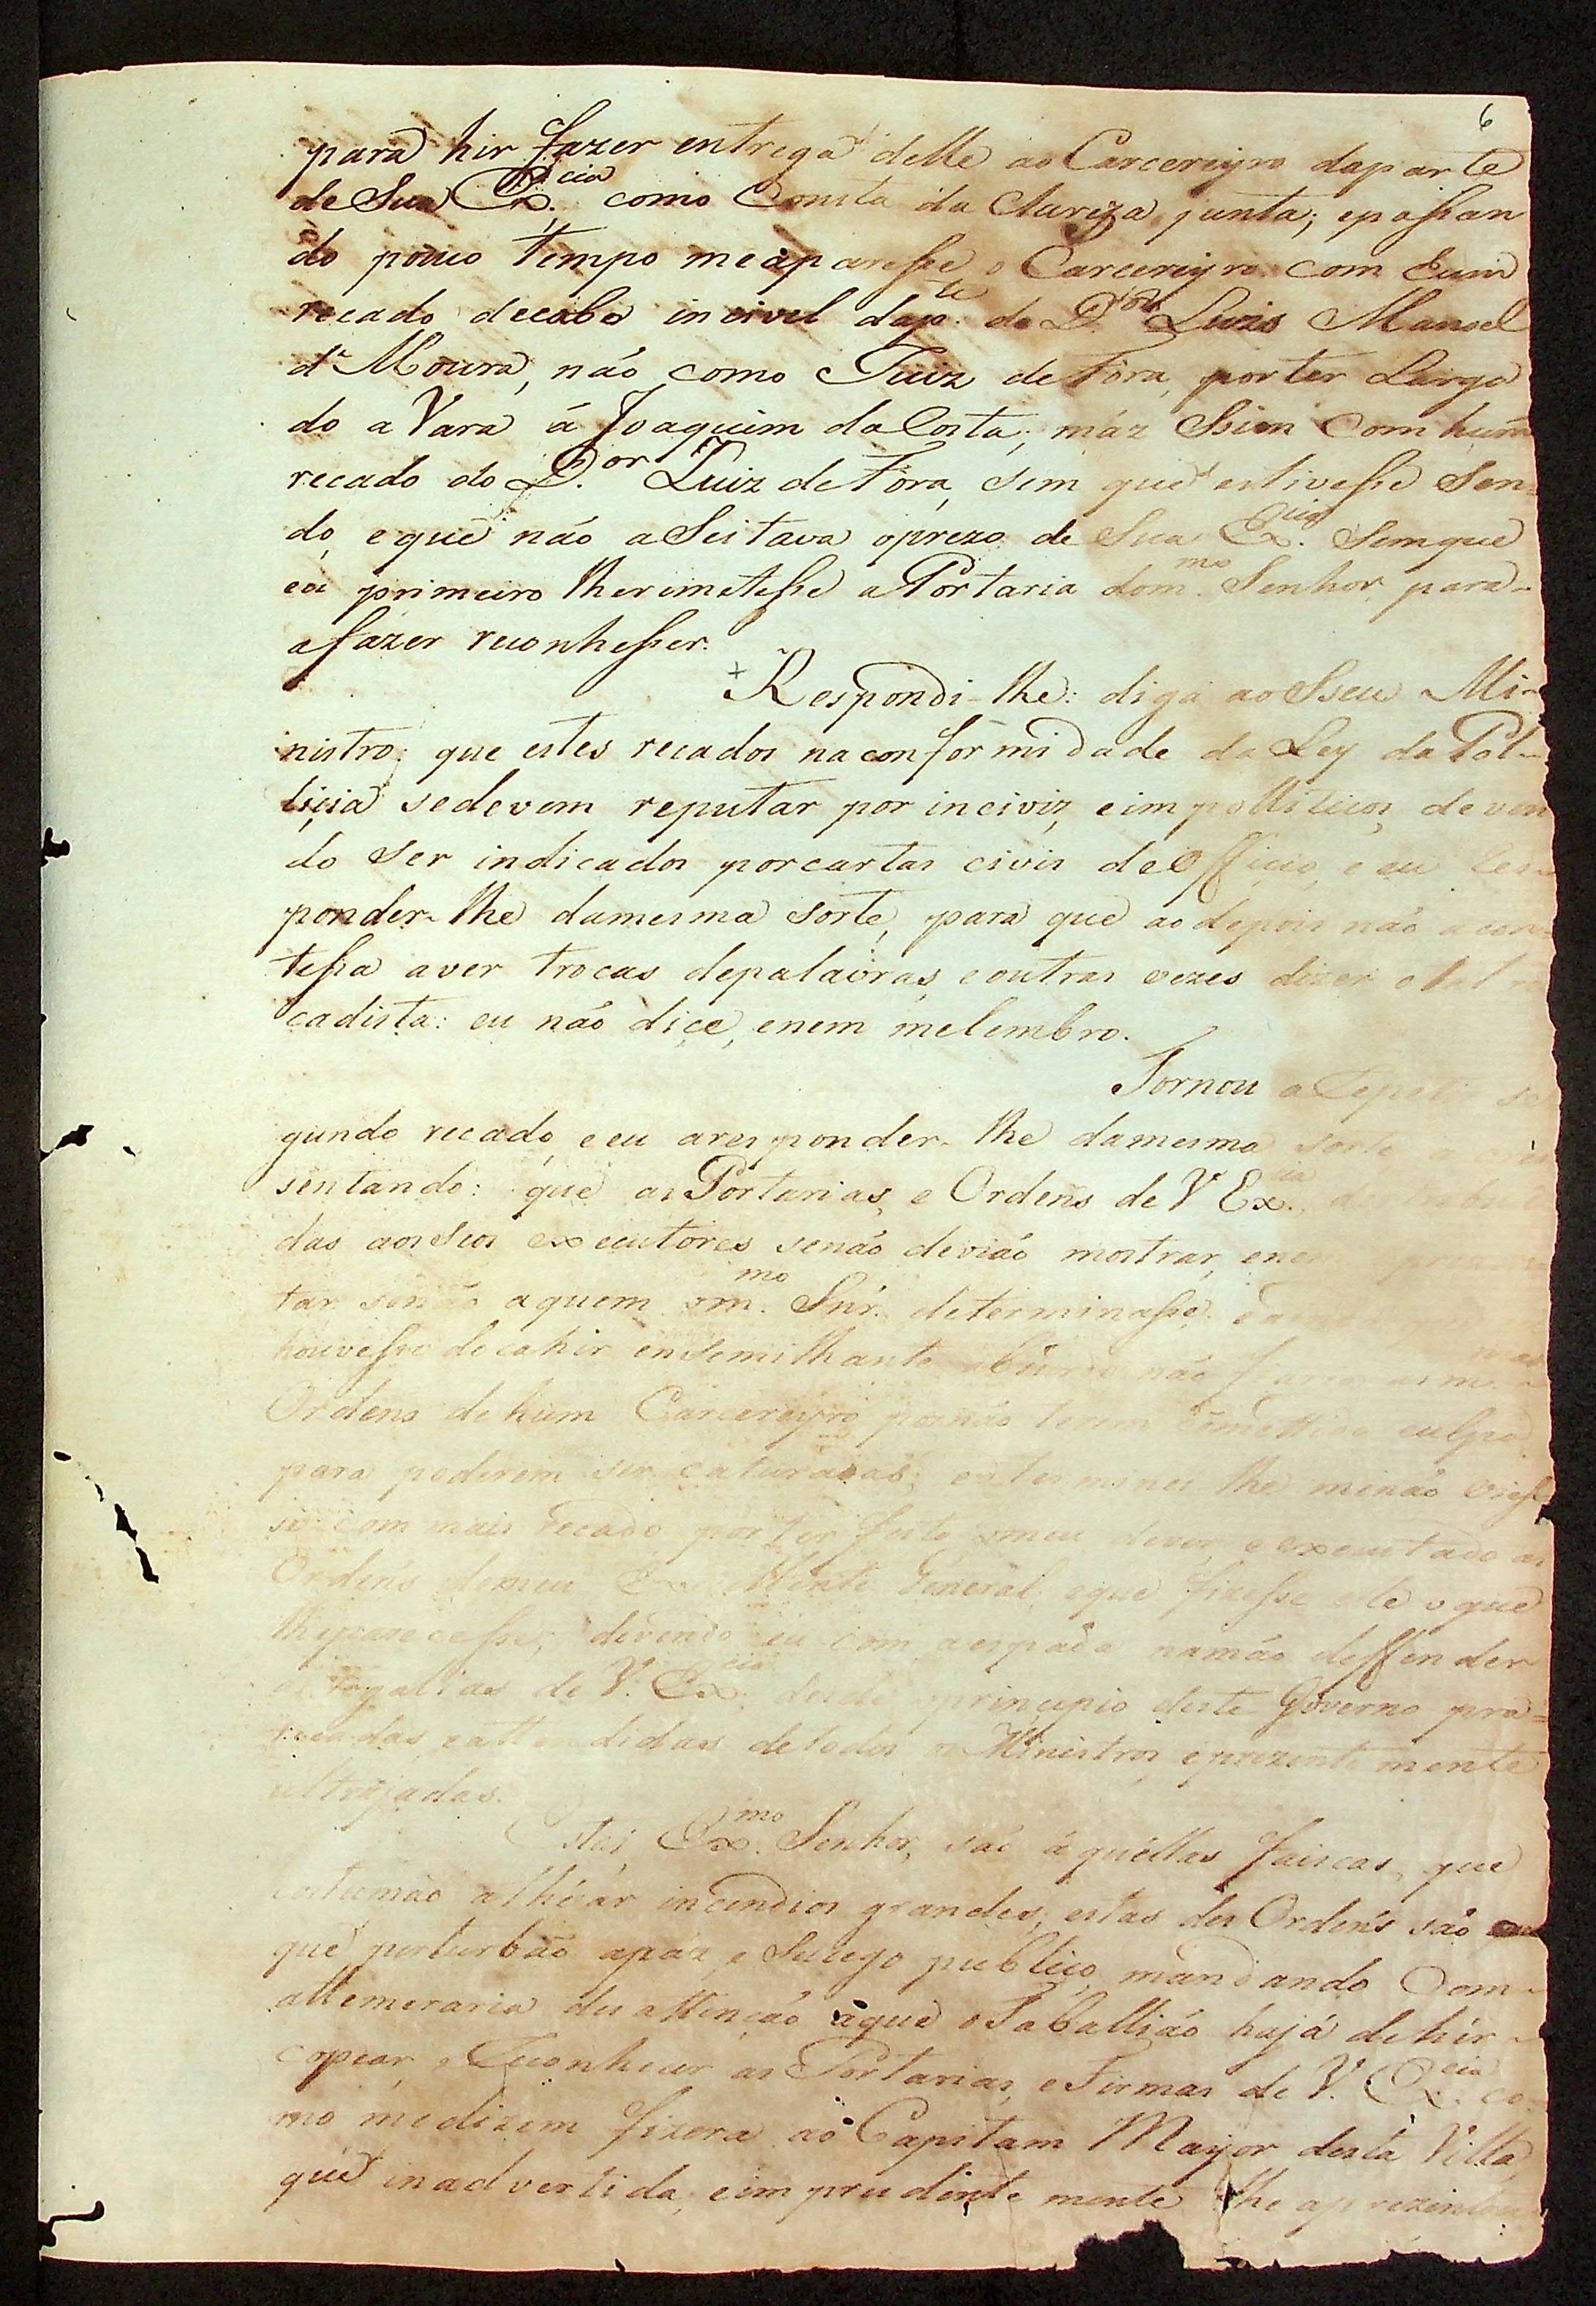 6
para hir fazer entrega delle ao Carcereiyro daparte
de Sua Ex.cia como Consta da Clareza junta; epassan
do pouco tempo meaparesse o Carcereiyro com hum
recado decabo incivel dap.te do D.or Luis Manoel
d' Moura, não como Juiz de Fora, porter Larga
do a Vara á Joaquim da Costa; máz Ssim Com hum
recado do D.or Juiz de Fora, sem que estivesse Sen-
do, eque não aSeitava oprezo de Sua Ex.cia Semque
eu primeiro lheremetesse a Portaria dom.mo Senhor, para-
afazer reconhesser.
Respondi-lhe: diga ao Sseu Mi-
nistro: que estes recados naconformidade da Ley da Pol-
licia sedevem reputar por inciviz, eimpolliticos, deven
do ser indicados porcartas civis deOfficio, e eu Res-
ponder-lhe damesma sorte, para que ao depois não acon-
tessa aver trocas depalavras, eoutras vezes dizer o tal re
cadista: eu não diçe, enem melembro.
Tornou a Repetir se
gundo recado, eeu aresponder-lhe damesma sorte
sentando: que as Portarias, e Ordens de V Ex.cia
das aos Seos executores senão devião mostrar, enem
tar senão aquem om.mo Snr. determinasse,
houvesse decahir emSemilhante não
Ordens de hum Carcereiyro por não terem Cemettido culpa
para poderem ser caturadas; eatermines lhe menão viesse
se com mais recado por ter feito omeu dever, e executado as
Ordens demeu Excellente General, eque fizesse elle o que
lheparecesse, devendo eu com aespada namão deffender
as regallias de V. Ex.cia desde oprincipio deste Governo pra-
ticadas, eattendidas detodos os Ministros, eprezentemente
ultrajadas.
Estas, Ex.mo Senhor, são áquellas faiscas, que
costumão atheár incendios grandes; estas des Ordens são as
que perturbão apáz, e Sucego publico, mandando Com-
attemeraria desattenção áque oTaballião hajá dehir-
copear, e Reconhecer as Portarias, eFirmas de V. Ex.cia co-
mo medizem fizera ao Capitam Mayor desta Villa,
que inadvertida, eimprudentemente lhe aprezentou